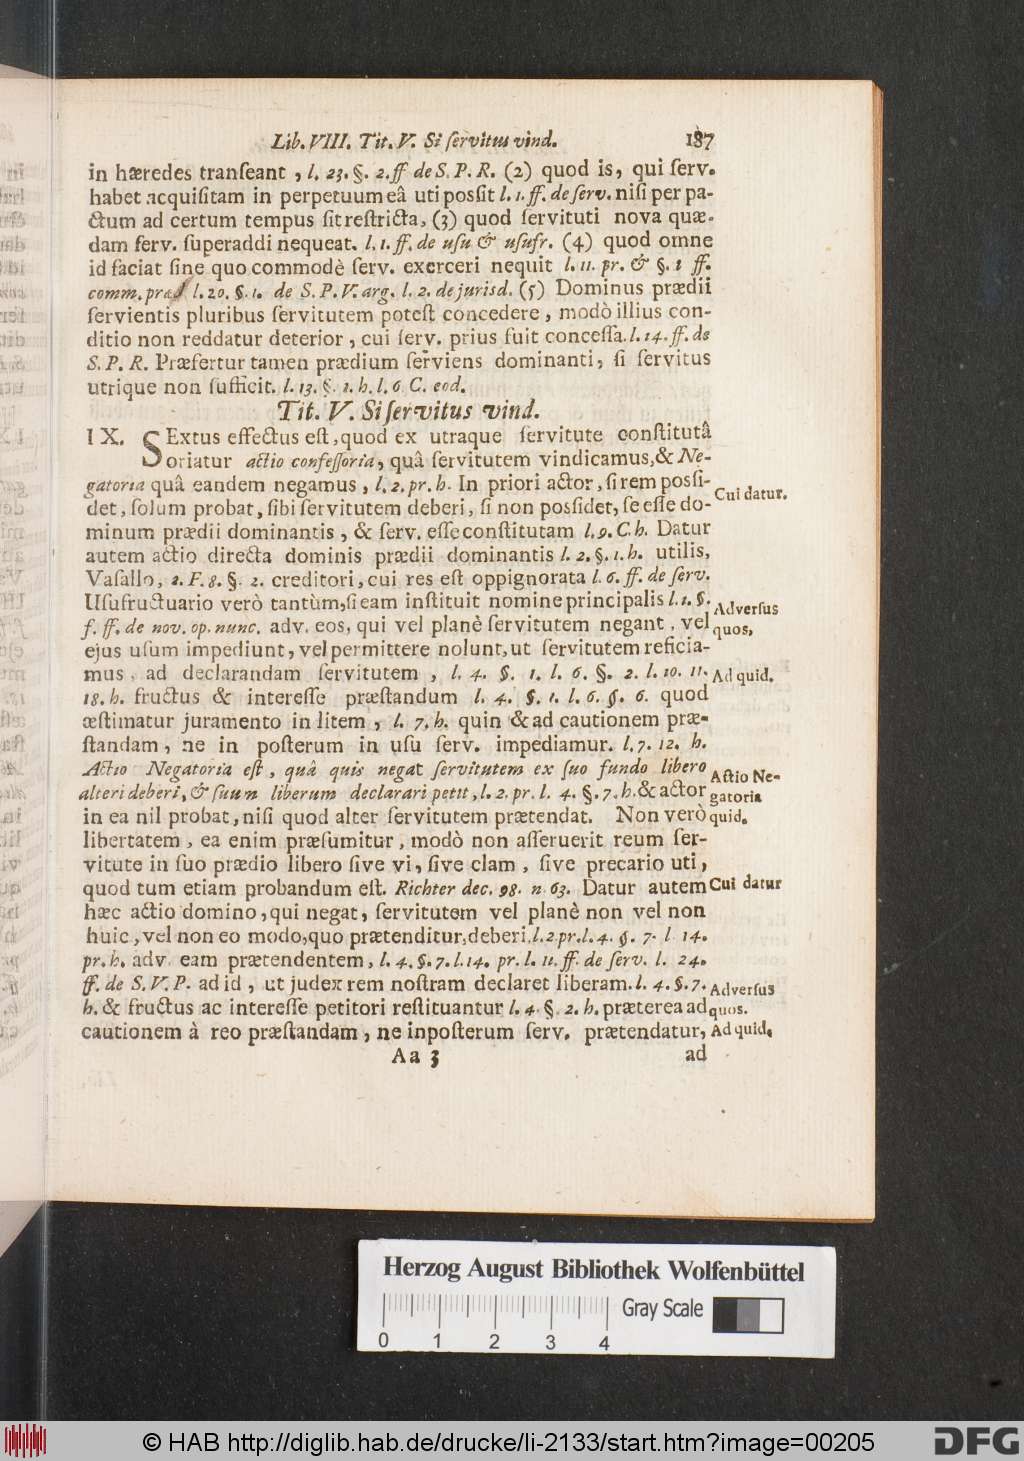 Lib. VIII. Tit. V. Si ſervitus vind. 187
in hæredes tranſeant, l. 23. §. 2. ff de S. P. R. (2) quod is, qui ſerv.
habet acquiſitam in perpetuum eâ uti poſſit l. 1. ff. de ſerv. niſi per pa-
ctum ad certum tempus ſit reſtricta, (3) quod ſervituti nova quæ-
dam ſerv. ſuperaddi nequeat. l. 1. ff. de uſu & uſufr. (4) quod omne
id faciat ſine quo commodè ſerv. exerceri nequit l. 11. pr. & §. 1 ff.
comm. præd l. 20. §. 1. de S. P. V. arg. l. 2. de jurisd. (5) Dominus prædii
ſervientis pluribus ſervitutem poteſt concedere, modò illius con-
ditio non reddatur deterior, cui ſerv. prius fuit conceſſa. l. 14. ff. de
S. P. R. Præfertur tamen prædium ſerviens dominanti, ſi ſervitus
utrique non ſufficit. l. 13. §. 1. h. l. 6 C. eod.
Tit. V. Si ſervitus vind.
IX. SExtus effectus eſt, quod ex utraque ſervitute conſtitutâ
oriatur actio confeſſoria, quâ ſervitutem vindicamus, & Ne-
gatoria quâ eandem negamus, l. 2. pr. h. In priori actor, ſi rem poſſi-
det, ſolum probat, ſibi ſervitutem deberi, ſi non poſſidet, ſe eſſe do- Cui datur.
minum prædii dominantis, & ſerv. eſſe conſtitutam l. 9. C. h. Datur
autem actio directa dominis prædii dominantis l. 2. §. 1. h. utilis,
Vaſallo, 2. F. 8. §. 2. creditori, cui res eſt oppignorata l. 6. ff. de ſerv.
Uſufructuario verò tantùm, ſi eam inſtituit nomine principalis l. 1. §. Adverſus
f. ff. de nov. op. nunc. adv. eos, qui vel planè ſervitutem negant, vel quos,
ejus uſum impediunt, vel permittere nolunt, ut ſervitutem reficia-
mus, ad declarandam ſervitutem, l. 4. §. 1. l. 6. §. 2. l. 10. 11. Ad quid.
18. h. fructus & intereſſe præſtandum l. 4. §. 1. l. 6. §. 6. quod
æſtimatur juramento in litem, l. 7. h. quin & ad cautionem præ-
ſtandam, ne in poſterum in uſu ſerv. impediamur. l. 7. 12. h.
Actio Negatoria eſt, quâ quis negat ſervitutem ex ſuo fundo libero Actio Ne-
alteri deberi, & ſuum liberum declarari petit, l. 2. pr. l. 4. §. 7. h. & actor gatoria
in ea nil probat, niſi quod alter ſervitutem prætendat. Non verò quid.
libertatem, ea enim præſumitur, modò non aſſeruerit reum ſer-
vitute in ſuo prædio libero ſive vi, ſive clam, ſive precario uti,
quod tum etiam probandum eſt. Richter dec. 98. n 63. Datur autem Cui datur
hæc actio domino, qui negat, ſervitutem vel planè non vel non
huic, vel non eo modo, quo prætenditur, deberi. l. 2 pr. l. 4. §. 7. l 14.
pr. h. adv. eam prætendentem, l. 4. §. 7. l. 14. pr. l. 11. ff. de ſerv. l. 24.
ff. de S. V. P. ad id, ut judex rem noſtram declaret liberam. l. 4. §. 7. Adverſus
h. & fructus ac intereſſe petitori reſtituantur l. 4. §. 2. h. præterea ad quos.
cautionem à reo præſtandam, ne inpoſterum ſerv. prætendatur, Ad quid.
Aa 3 ad
Herzog August Bibliothek Wolfenbüttel
Gray Scale
0 1 2 3 4
© HAB http://diglib.hab.de/drucke/li-2133/start.htm?image=00205
DFG